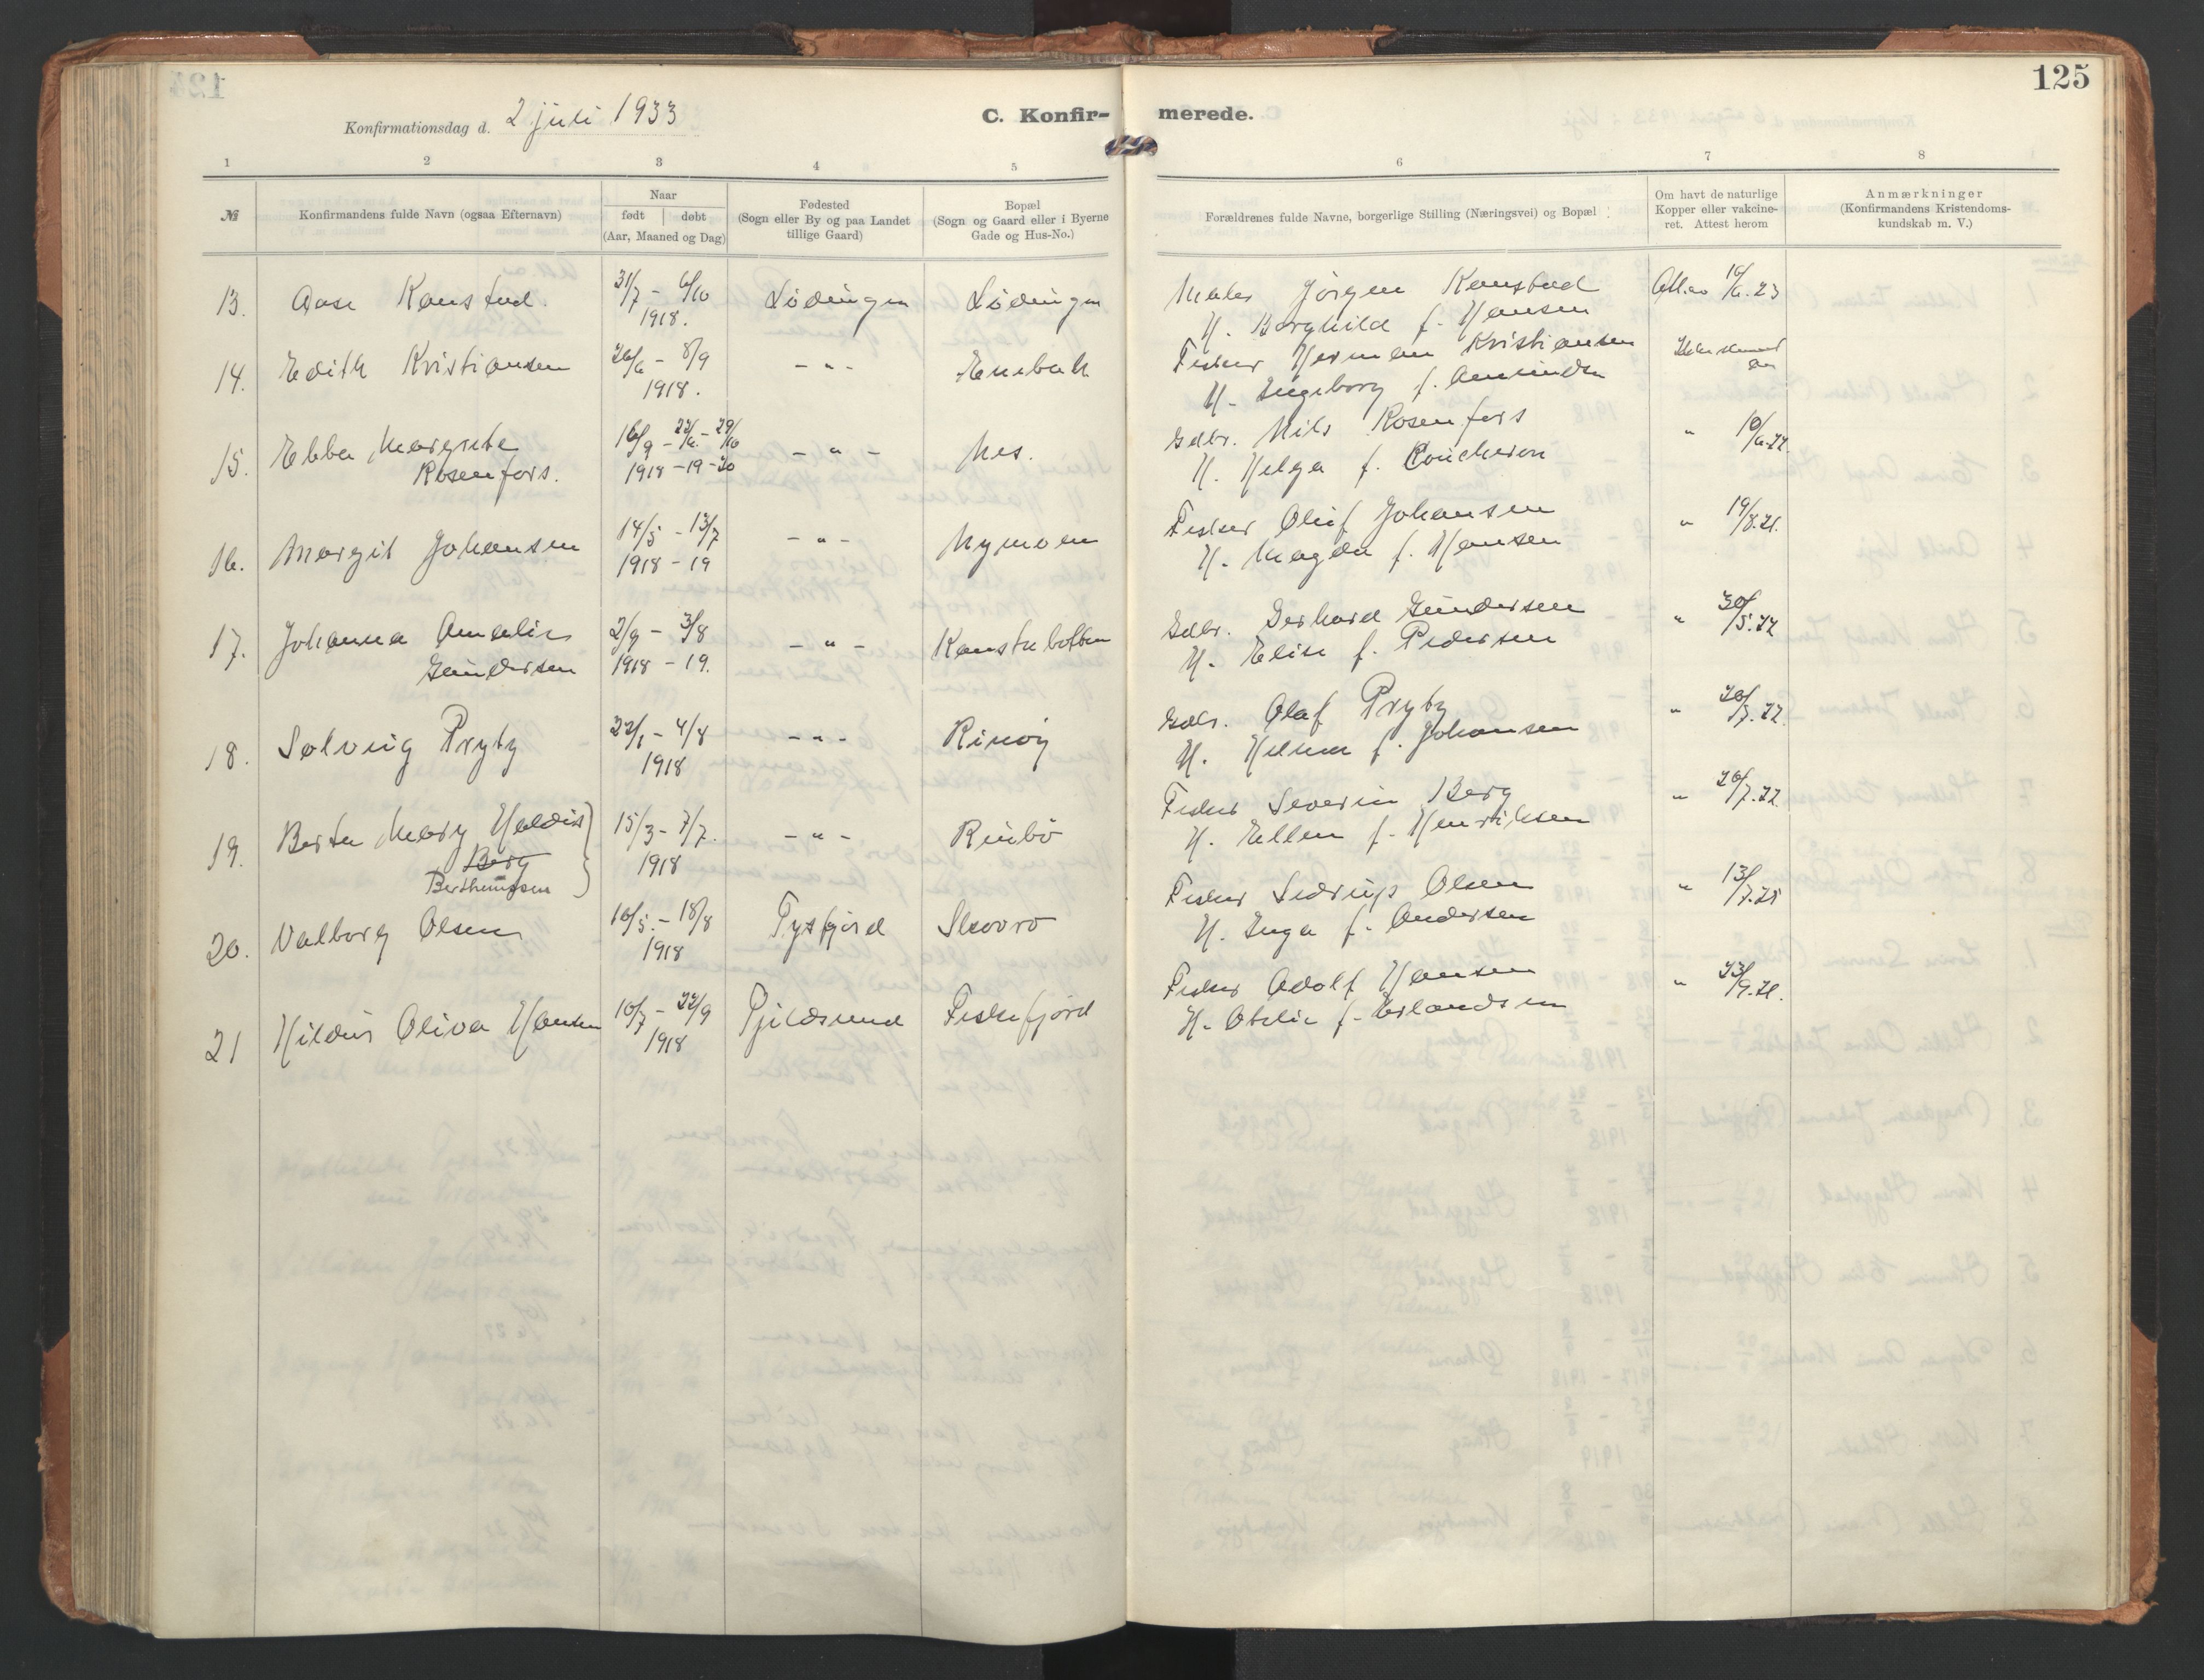 125
Konfirmationsdag d. 2 juli 1933
C. Konfir-
merede.
1 2 3 4 5 6 7 8
№
Konfirmandens fulde Navn (ogsaa Efternavn)
Naar
født | døbt
(Aar, Maaned og Dag)
Fødested
(Sogn eller By og paa Landet
tillige Gaard)
Bopæl
(Sogn og Gaard eller i Byerne
Gade og Hus-No.)
Forældrenes fulde Navne, borgerlige Stilling (Næringsvei) og Bopæl
Om havt de naturlige
Kopper eller vakcine-
ret. Attest herom
Anmærkninger
(Konfirmandens Kristendoms-
kundskab m. V.)
13. Aase Kanstad. 31/7 - 6/10 Lødingen Lødingen Maler Jörgen Kanstad
1918. H. Borghild f. Hansen
14. Edith Kristiansen 26/6 - 8/9 - " - Enebak Fisker Herman Kristiansen
1918. H. Ingeborg f. Amundsen
15. Ebba Margrete 16/9 - 22/6 - 29/10 - " - Nes. Gdbr. Nils Rosenfors " 10/6.22
Rosenfors. 1918 - 19 - 20 H. Helga f. Coucheron
16. Margit Johansen 14/5 - 13/7 - " - Nymoen Fisker Oluf Johansen " 19/8.21.
1918 - 19 H. Magda f. Hansen
17. Johanna Amalie 2/9 - 3/8 - " - Kanstabotten Gdbr. Gerhard Gundersen " 30/5.22
Gundersen 1918 - 19. H. Elise f. Pedersen
18. Solveig Prytz 22/1 - 4/8 - " - Rinöy Gdbr. Olaf Prytz " 20/7.22.
1918 H. Helma f. Johansen
19. Berta Mary Haldis 15/3 - 7/7. - " - Rinbö Fisker Severin Berg " 20/7.22
Berg 1918 H. Ellen f. Henriksen
Berthinussen
20. Valborg Olsen 16/5. - 18/8 Tysfjord Skovro Fisker Sedrup Olsen " 13/7.25
1918 H. Inga f. Andersen
21 Hildur Oliva Hansen 10/7 - 22/9 Tjeldsund Fiskefjord Fisker Adolf Hansen " 23/9.21.
1918 H. Otelie f. Erlandsen